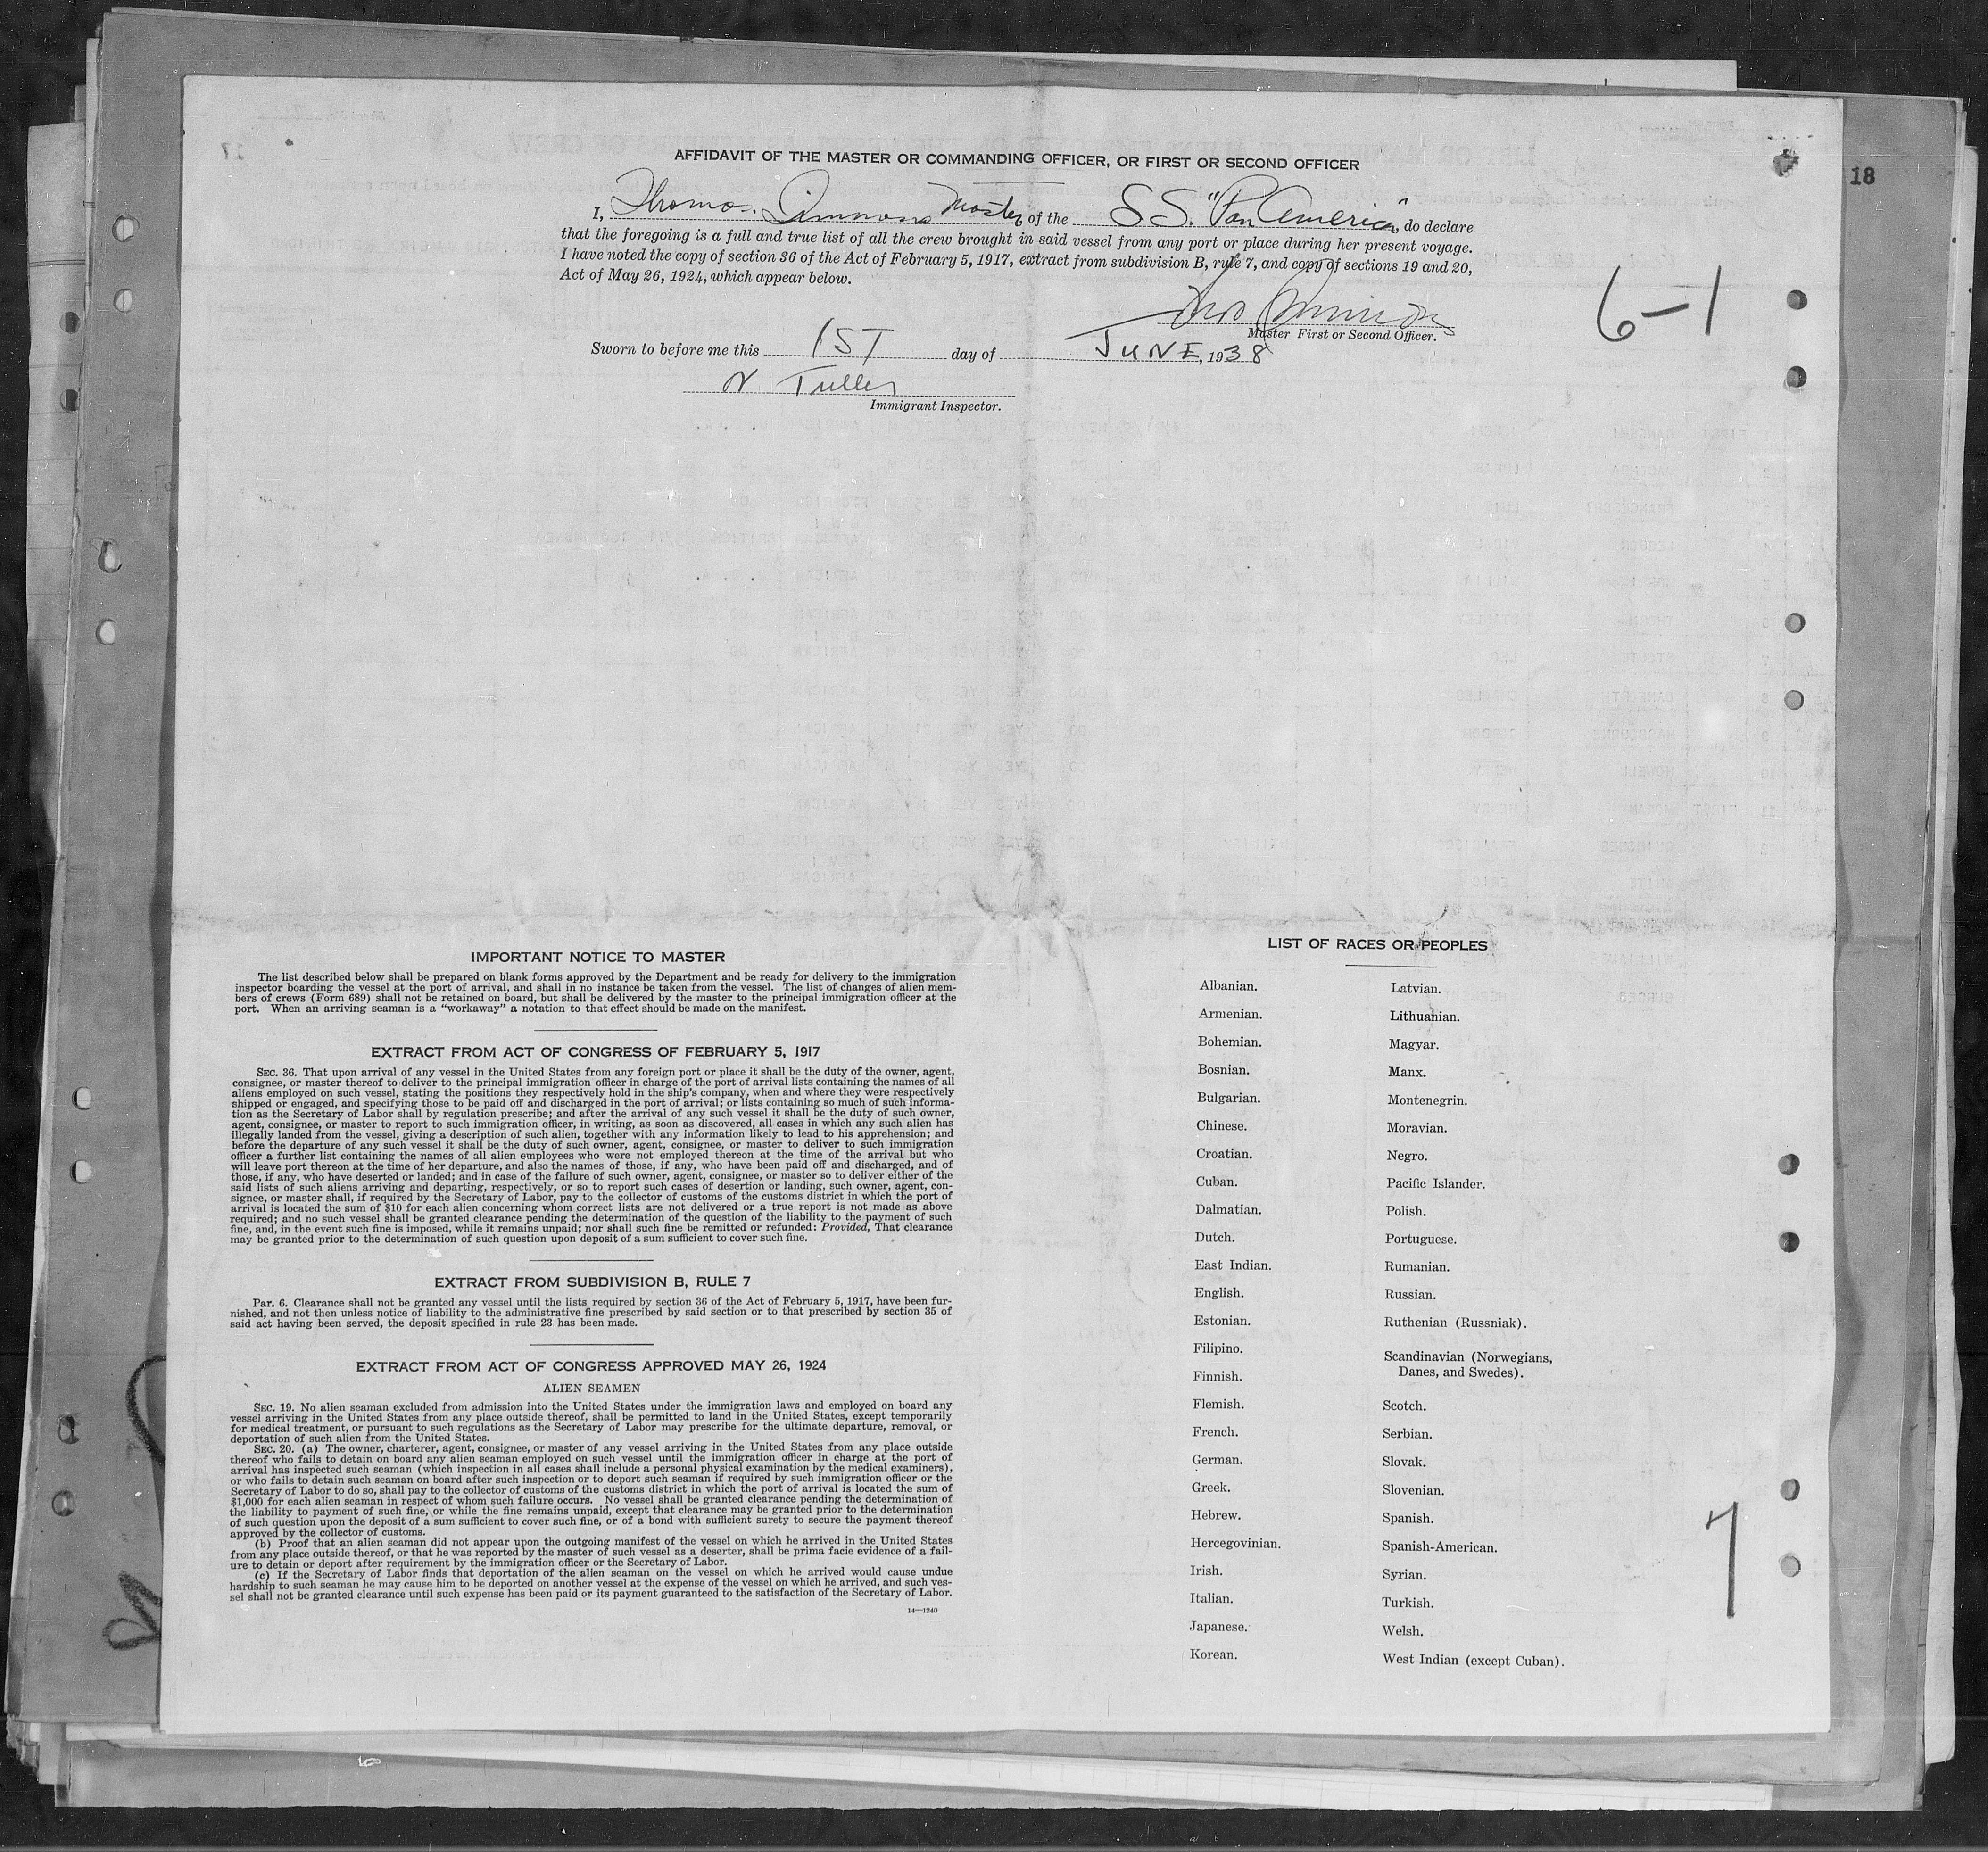 18
AFFIDAVIT OF THE MASTER OR COMMANDING OFFICER, OR FIRST OR SECOND OFFICER
I, Thomas Simmons Master of the S.S. "Pan America", do declare
that the foregoing is a full and true list of all the crew brought in said vessel from any port or place during her present voyage.
I have noted the copy of section 36 of the Act of February 5, 1917, extract from subdivision B, rule 7, and copy of sections 19 and 20,
Act of May 26, 1924, which appear below.
6-1
Thos Simmons
Master First or Second Officer.
Sworn to before me this 1ST day of JUNE, 1938
Immigrant Inspector.
IMPORTANT NOTICE TO MASTER
The list described below shall be prepared on blank forms approved by the Department and be ready for delivery to the immigration
inspector boarding the vessel at the port of arrival, and shall in no instance be taken from the vessel. The list of changes of alien mem-
bers of crews (Form 689) shall not be retained on board, but shall be delivered by the master to the principal immigration officer at the
port. When an arriving seaman is a "workaway" a notation to that effect should be made on the manifest.
EXTRACT FROM ACT OF CONGRESS OF FEBRUARY 5, 1917
SEC. 36. That upon arrival of any vessel in the United States from any foreign port or place it shall be the duty of the owner, agent,
consignee, or master thereof to deliver to the principal immigration officer in charge of the port of arrival lists containing the names of all
aliens employed on such vessel, stating the positions they respectively hold in the ship's company, when and where they were respectively
shipped or engaged, and specifying those to be paid off and discharged in the port of arrival; or lists containing so much of such informa-
tion as the Secretary of Labor shall by regulation prescribe; and after the arrival of any such vessel it shall be the duty of such owner,
agent, consignee, or master to report to such immigration officer, in writing, as soon as discovered, all cases in which any such alien has
illegally landed from the vessel, giving a description of such alien, together with any information likely to lead to his apprehension; and
before the departure of any such vessel it shall be the duty of such owner, agent, consignee, or master to deliver to such immigration
officer a further list containing the names of all alien employees who were not employed thereon at the time of the arrival but who
will leave port thereon at the time of her departure, and also the names of those, if any, who have been paid off and discharged, and of
those, if any, who have deserted or landed; and in case of the failure of such owner, agent, consignee, or master so to deliver either of the
said lists of such aliens arriving and departing, respectively, or so to report such cases of desertion or landing, such owner, agent, con-
signee, or master shall, if required by the Secretary of Labor, pay to the collector of customs of the customs district in which the port of
arrival is located the sum of $10 for each alien concerning whom correct lists are not delivered or a true report is not made as above
required; and no such vessel shall be granted clearance pending the determination of the question of the liability to the payment of such
fine, and, in the event such fine is imposed, while it remains unpaid; nor shall such fine be remitted or refunded: Provided, That clearance
may be granted prior to the determination of such question upon deposit of a sum sufficient to cover such fine.
EXTRACT FROM SUBDIVISION B, RULE 7
Par. 6. Clearance shall not be granted any vessel until the lists required by section 36 of the Act of February 5, 1917, have been fur-
nished, and not then unless notice of liability to the administrative fine prescribed by said section or to that prescribed by section 35 of
said act having been served, the deposit specified in rule 23 has been made.
EXTRACT FROM ACT OF CONGRESS APPROVED MAY 26, 1924
ALIEN SEAMEN
SEC. 19. No alien seaman excluded from admission into the United States under the immigration laws and employed on board any
vessel arriving in the United States from any place outside thereof, shall be permitted to land in the United States, except temporarily
for medical treatment, or pursuant to such regulations as the Secretary of Labor may prescribe for the ultimate departure, removal, or
deportation of such alien from the United States.
SEC. 20. (a) The owner, charterer, agent, consignee, or master of any vessel arriving in the United States from any place outside
thereof who fails to detain on board any alien seaman employed on such vessel until the immigration officer in charge at the port of
arrival has inspected such seaman (which inspection in all cases shall include a personal physical examination by the medical examiners),
or who fails to detain such seaman on board after such inspection or to deport such seaman if required by such immigration officer or the
Secretary of Labor to do so, shall pay to the collector of customs of the customs district in which the port of arrival is located the sum of
$1,000 for each alien seaman in respect of whom such failure occurs. No vessel shall be granted clearance pending the determination of
the liability to payment of such fine, or while the fine remains unpaid, except that clearance may be granted prior to the determination
of such question upon the deposit of a sum sufficient to cover such fine, or of a bond with sufficient surety to secure the payment thereof
approved by the collector of customs.
(b) Proof that an alien seaman did not appear upon the outgoing manifest of the vessel on which he arrived in the United States
from any place outside thereof, or that he was reported by the master of such vessel as a deserter, shall be prima facie evidence of a fail-
ure to detain or deport after requirement by the immigration officer or the Secretary of Labor.
(c) If the Secretary of Labor finds that deportation of the alien seaman on the vessel on which he arrived would cause undue
hardship to such seaman he may cause him to be deported on another vessel at the expense of the vessel on which he arrived, and such ves-
sel shall not be granted clearance until such expense has been paid or its payment guaranteed to the satisfaction of the Secretary of Labor.
14—1240
LIST OF RACES OR PEOPLES
Albanian.
Armenian.
Bohemian.
Bosnian.
Bulgarian.
Chinese.
Croatian.
Cuban.
Dalmatian.
Dutch.
East Indian.
English.
Estonian.
Filipino.
Finnish.
Flemish.
French.
German.
Greek.
Hebrew.
Hercegovinian.
Irish.
Italian.
Japanese.
Korean.
Latvian.
Lithuanian.
Magyar.
Manx.
Montenegrin.
Moravian.
Negro.
Pacific Islander.
Polish.
Portuguese.
Rumanian.
Russian.
Ruthenian (Russniak).
Scandinavian (Norwegians,
Danes, and Swedes).
Scotch.
Serbian.
Slovak.
Slovenian.
Spanish.
Spanish-American.
Syrian.
Turkish.
Welsh.
West Indian (except Cuban).
7